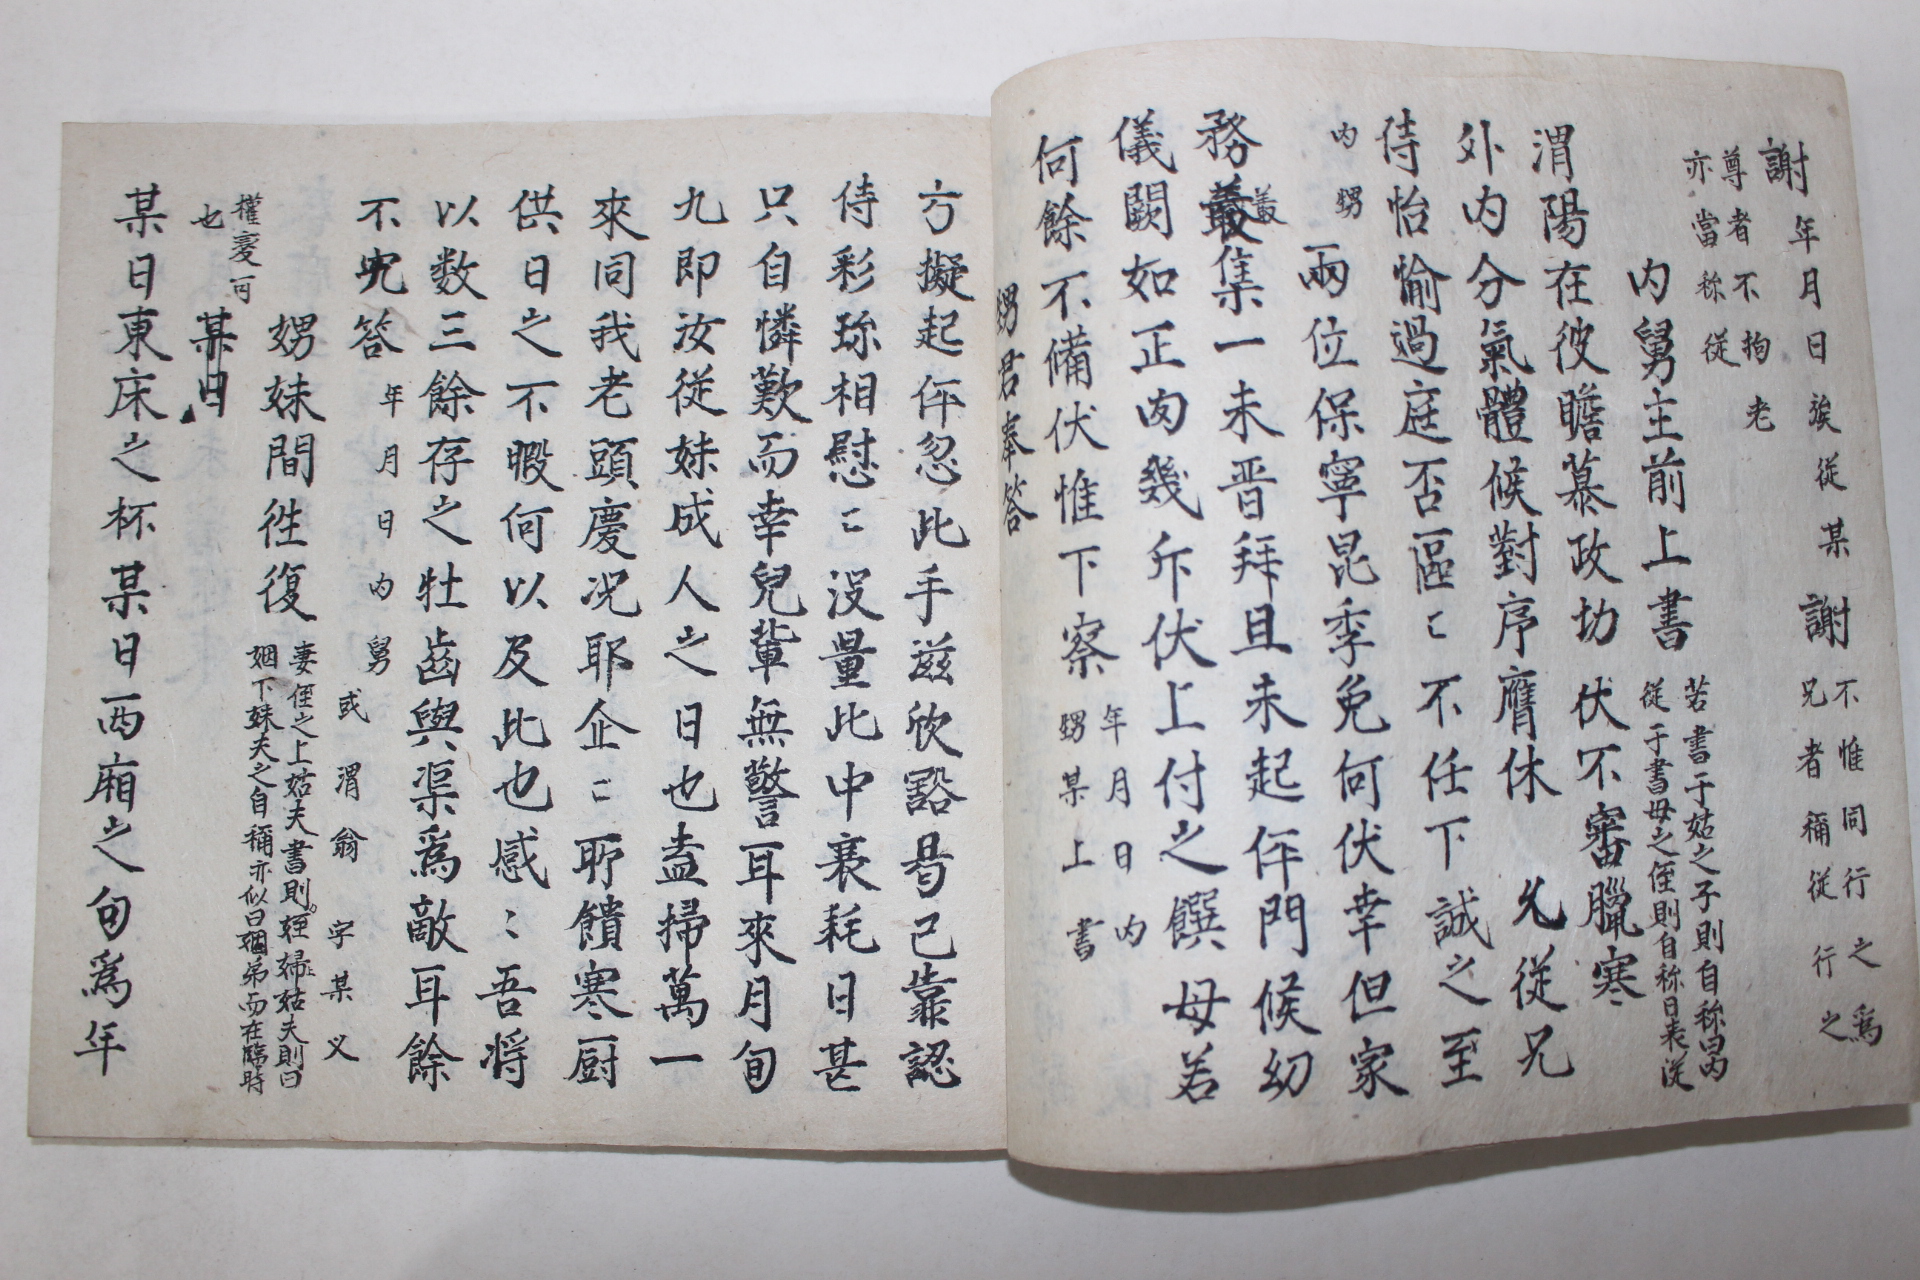 謝年月日 從某 謝 不惟同行之爲
兄者稱從行之
尊者不拘老
亦當称從
內舅主前上書 若書于姑之子則自称曰內
從于書母之侄則自称曰表從
渭陽在彼瞻慕政切 伏不審臘寒
外內分氣體候對序膺休 允從兄
侍怡愉過庭否區〻不任下誠之至
內甥 兩位保寧昆季免何伏幸但家
務叢集一未晋拜且未起伻門候幼
儀闕如正內幾斥伏上付之饌母若
何餘不備伏惟下察 年月日內
甥某上書
甥君奉答
方擬起伻忽此手滋欣豁曷已靠認
侍彩珎相慰〻没量此中衰耗日甚
只自憐歎而幸兒輩無警耳來月旬
九即汝從妹成人之日也盍掃萬一
來同我老頭慶况耶企〻所饋寒厨
供日之不暇何以及此也感〻吾將
以数三餘存之牡齒與渠爲敵耳餘
不宄答 年月日內舅 或渭翁 字某义
甥妹間徃復 妻侄之上姑夫書則姪婦姑夫則曰
姻下妹夫之自稱亦似曰姻弟而在臨時
權處可
也 某日
某日東床之杯某日西廂之句爲年